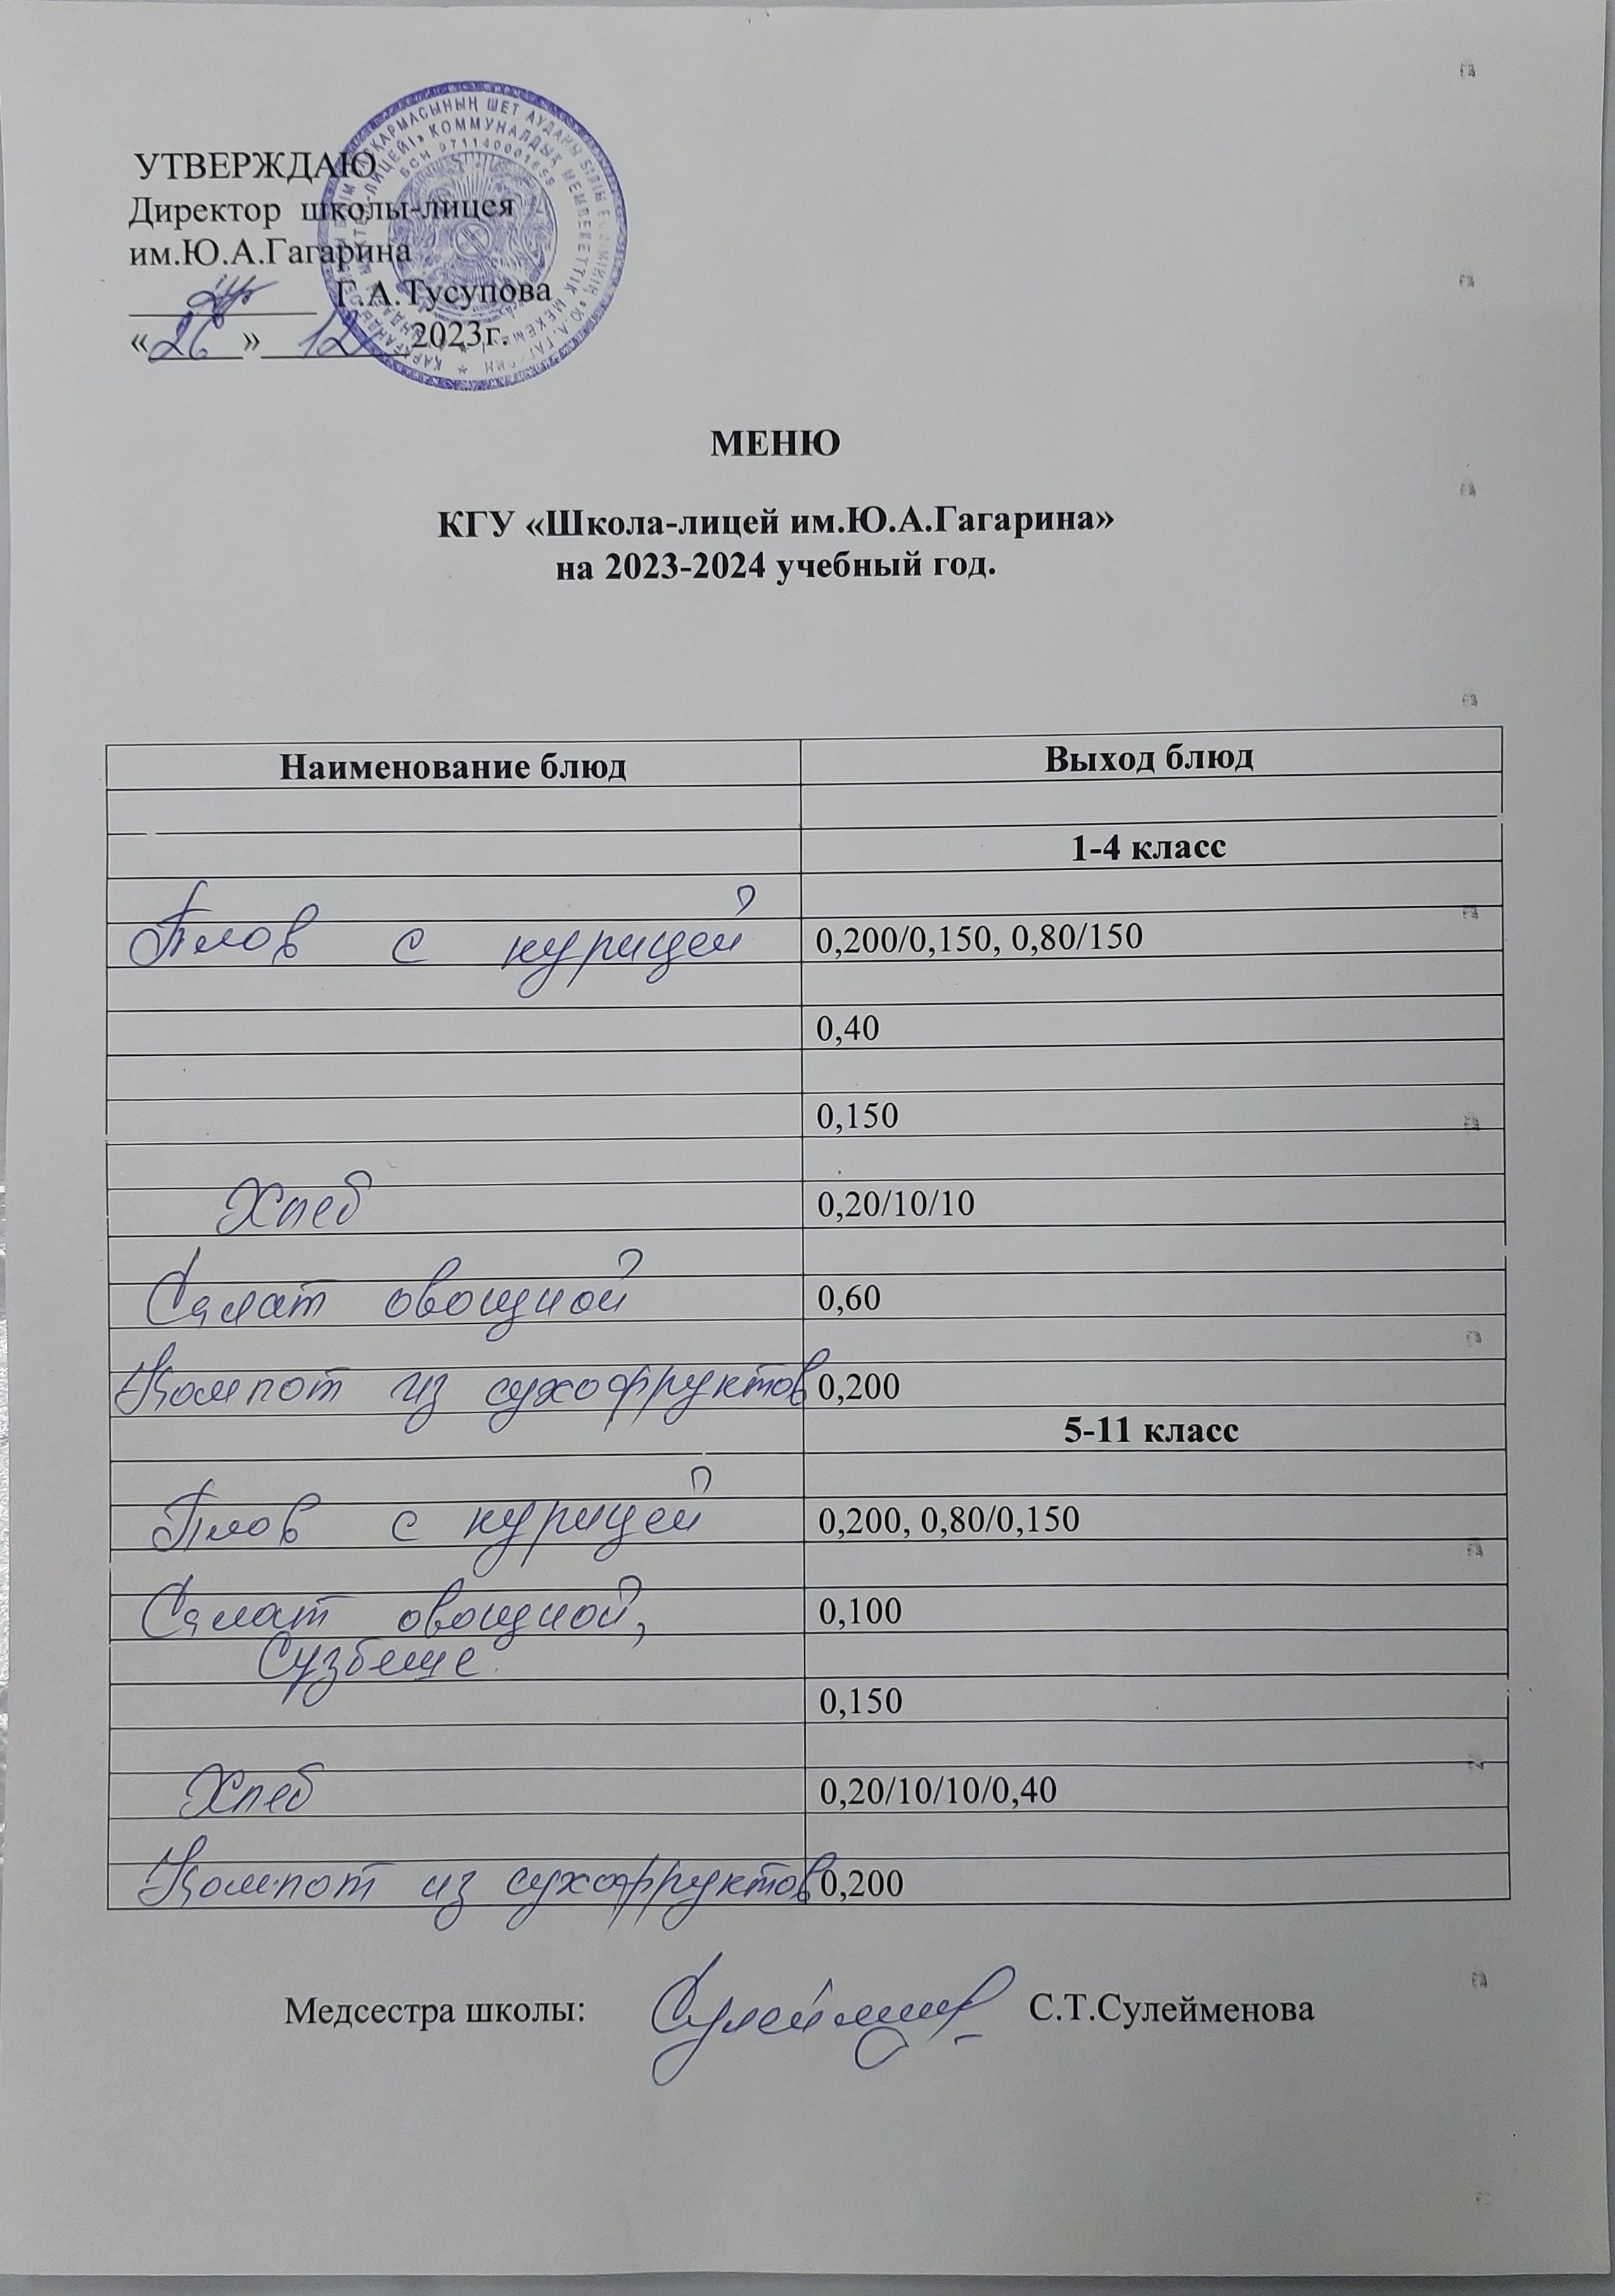 УТВЕРЖДАЮ
Директор школы-лицея
им.Ю.А.Гагарина
Г.А.Тусупова
«26» 12 2023г.
МЕНЮ
КГУ «Школа-лицей им.Ю.А.Гагарина»
на 2023-2024 учебный год.
Наименование блюд Выход блюд
1-4 класс
Плов с курицей 0,200/0,150, 0,80/150
0,40
0,150
Хлеб 0,20/10/10
Салат овощной 0,60
Компот из сухофруктов 0,200
5-11 класс
Плов с курицей 0,200, 0,80/0,150
Салат овощной, 0,100
Сузбеше
0,150
Хлеб 0,20/10/10/0,40
Компот из сухофруктов 0,200
Медсестра школы: С.Т.Сулейменова